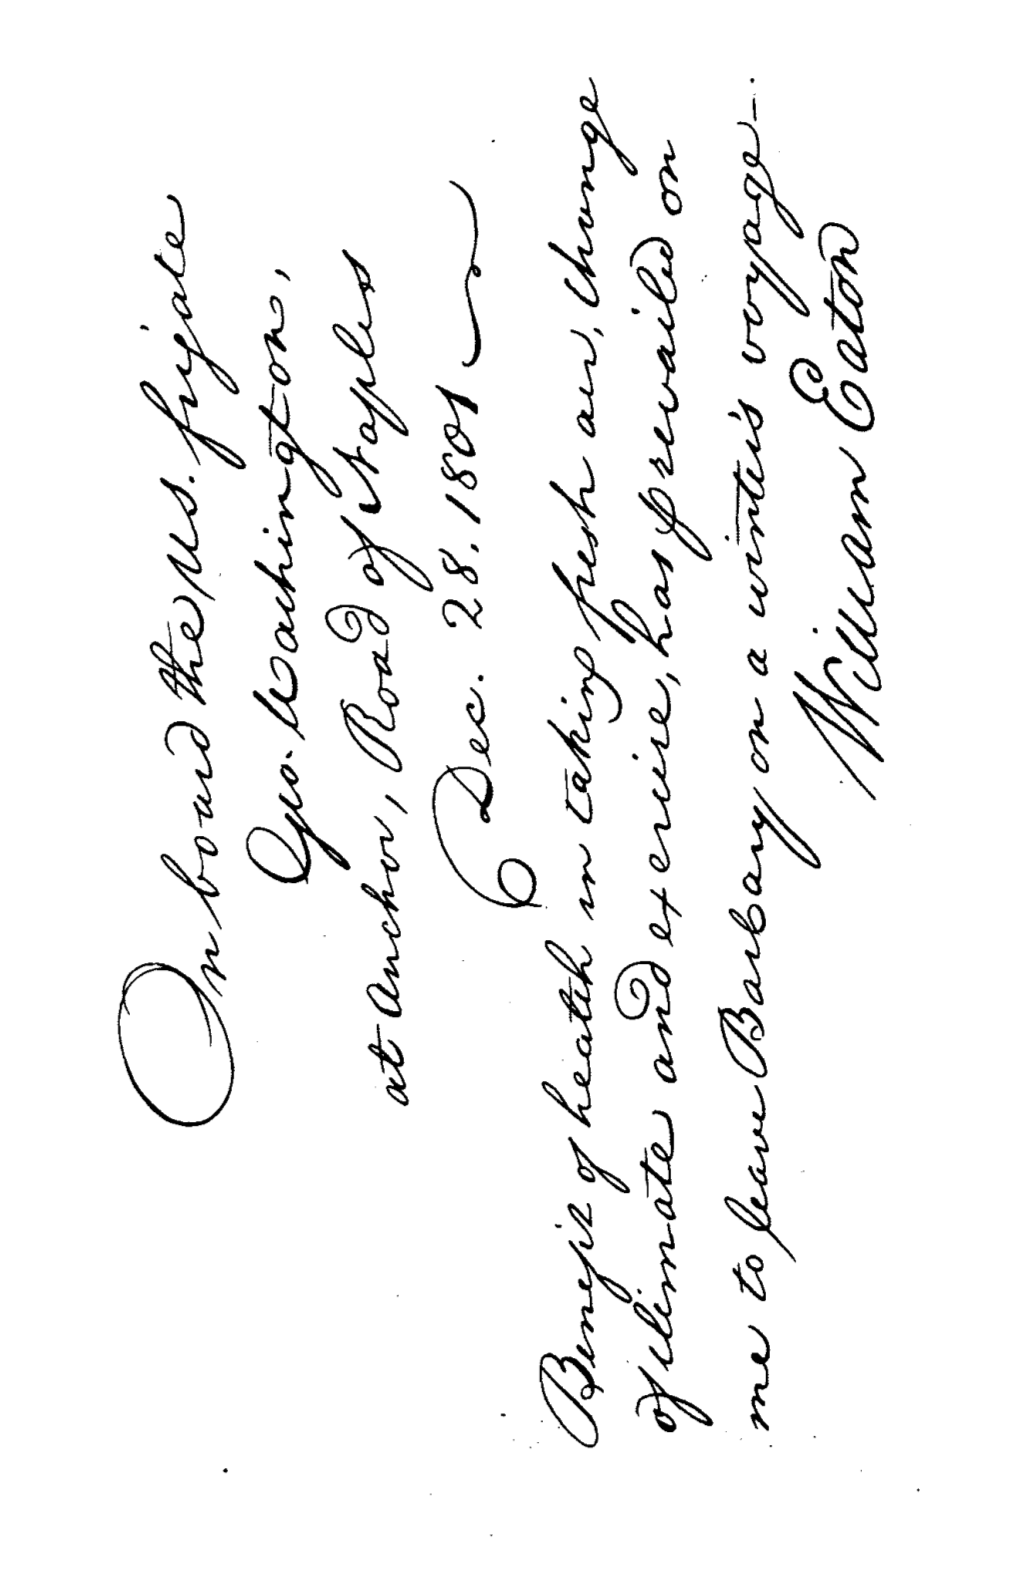 On board the U.S. frigate
Geo. Washington,
at anchor, Road of Naples
Dec. 28. 1801
Benefit of health in taking fresh air, change
of climate and exercise, has prevailed on
me to leave Barbary on a winter's voyage—.
William Eaton